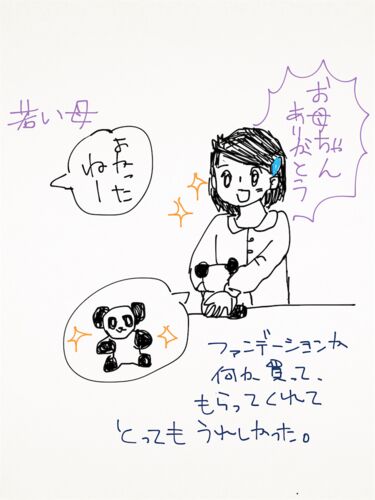 お母ちゃん
ありがとう
若い母
よかった
ねー
ファンデーションか
何か買って、
もらってくれて
とってもうれしかった。